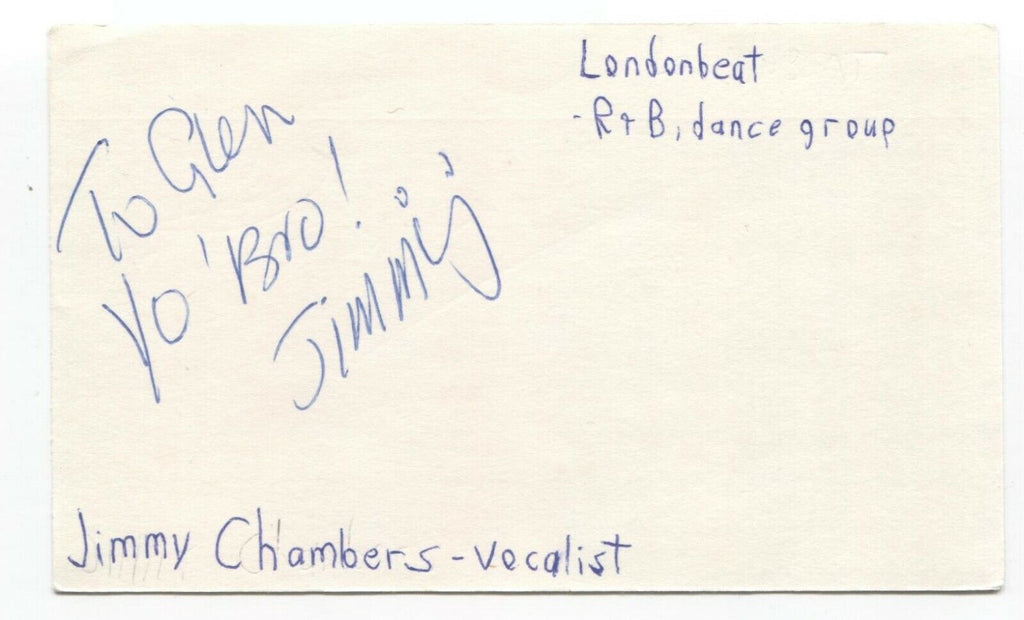 Londonbeat
-R+B, dance group
To Glen
Yo 'Bro!
Jimmy
Jimmy Chambers - vocalist